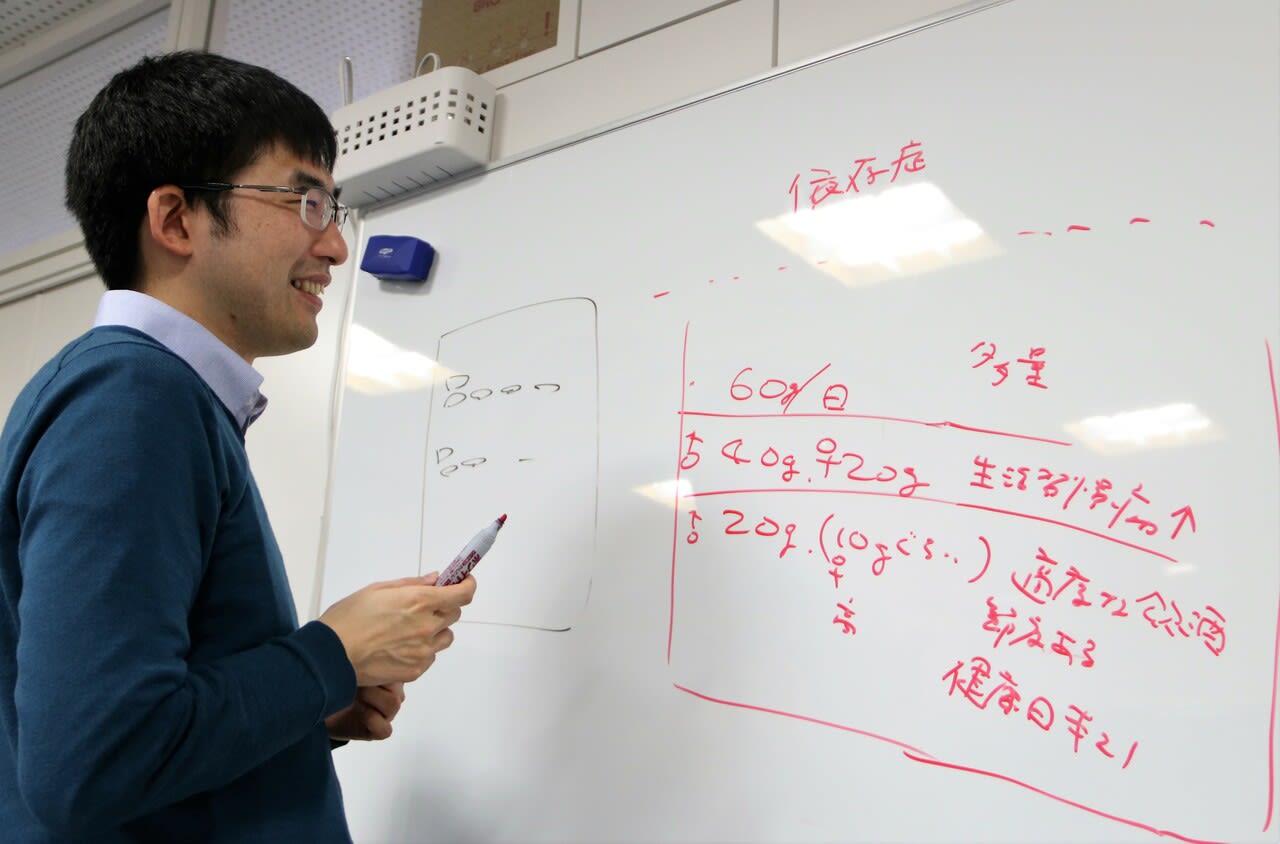 依存症
多量
・60g/日
♂40g.♀20g 生活習慣病↑
♂20g.(10gぐら..) 適度な飲酒
♀
節度ある
健康日本21